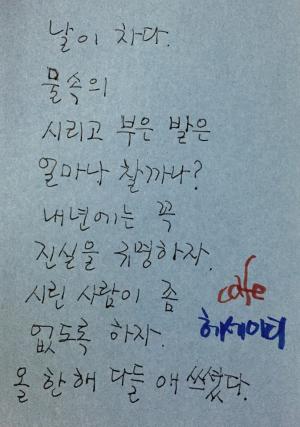 날이 차다.
물속의
시리고 부은 발은
얼마나 찰까나?
내년에는 꼭
진실을 규명하자.
시린 사람이 좀
없도록 하자.
올 한해 다들 애쓰셨다.
cafe
헤세이티